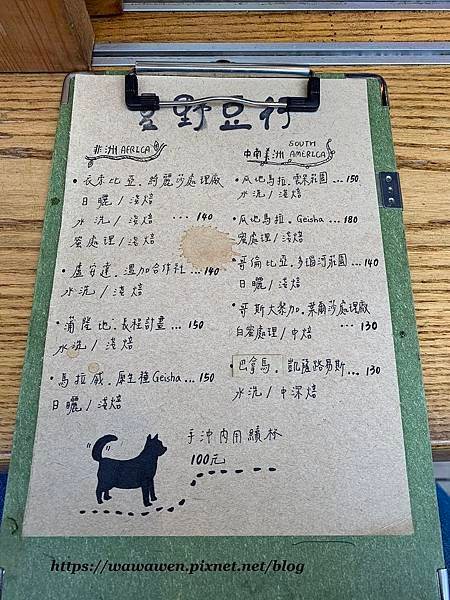 星野豆行
非洲 AFRICA
• 衣索比亞．綺麗莎處理廠
日曬 / 淺焙
水洗 / 淺焙 ... 140
蜜處理 / 淺焙
• 盧安達．溫加合作社 ... 140
水洗 / 淺焙
• 蒲隆地．長程計畫 ... 150
水洗 / 淺焙
• 馬拉威．原生種Geisha ... 150
日曬 / 淺焙
中南美洲 SOUTH AMERICA
• 瓜地馬拉．雲朵莊園 ... 150
水洗 / 淺焙
• 瓜地馬拉．Geisha ... 180
蜜處理 / 淺焙
• 哥倫比亞．多瑙河莊園 ... 140
日曬 / 淺焙
• 哥斯大黎加．萊爾莎處理廠
白蜜處理 / 中焙 ... 130
• 巴拿馬．凱薩路易斯 ... 130
水洗 / 中深焙
手沖內用續杯
100元
https://wawawen.pixnet.net/blog